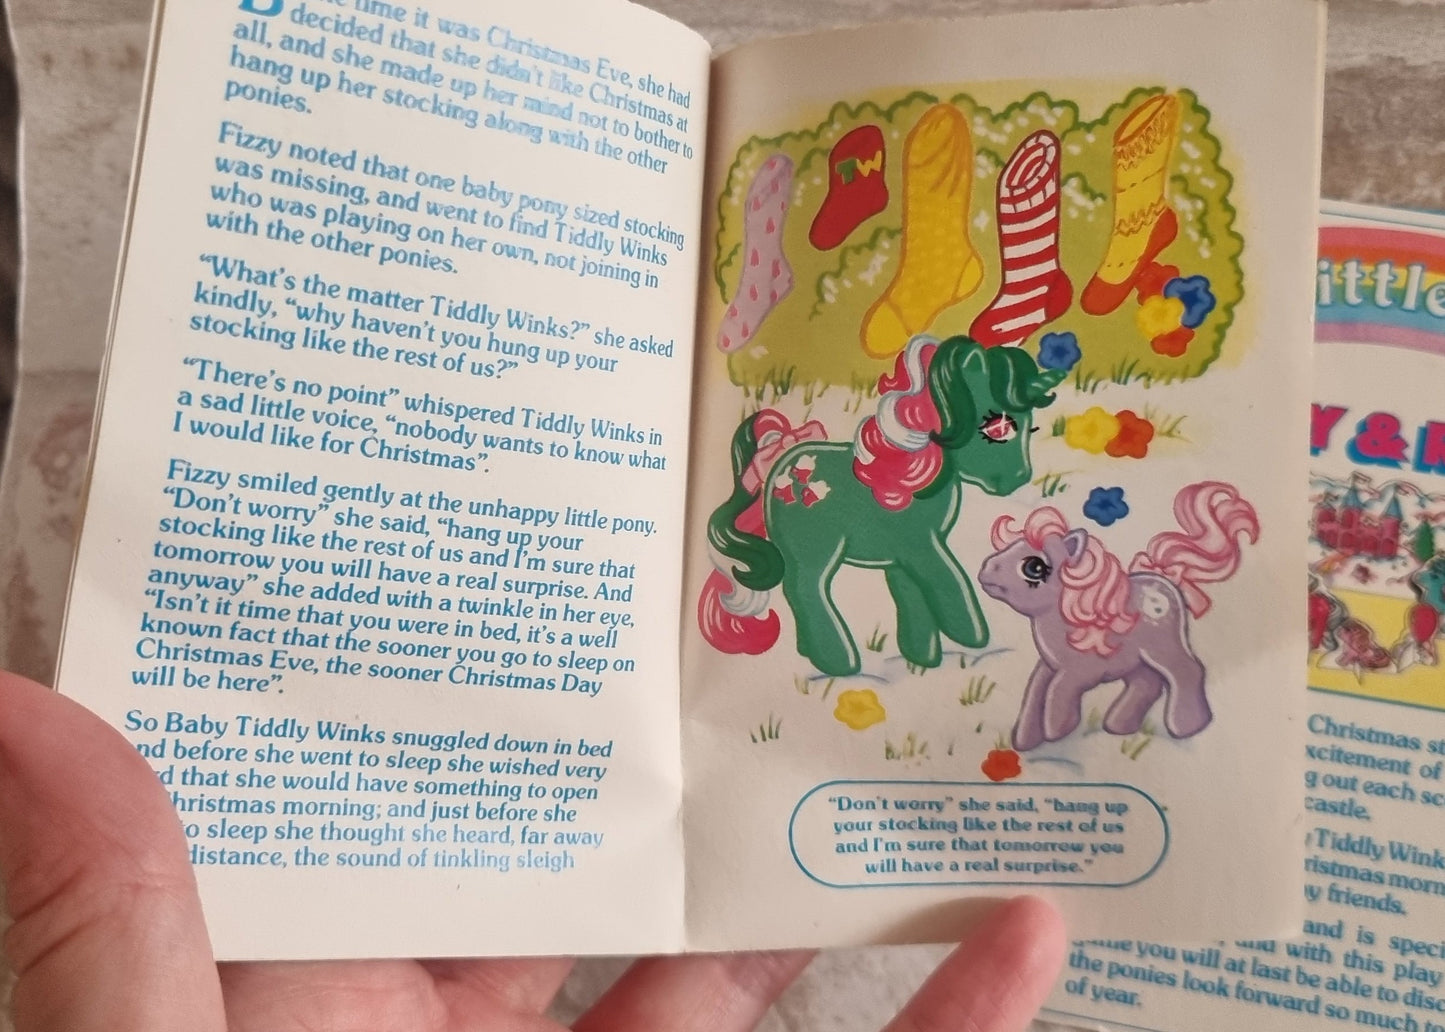 time it was Christmas Eve, she had
decided that she didn't like Christmas at
all, and she made up her mind not to bother to
hang up her stocking along with the other
ponies.
Fizzy noted that one baby pony sized stocking
was missing, and went to find Tiddly Winks
who was playing on her own, not joining in
with the other ponies.
“What's the matter Tiddly Winks?” she asked
kindly, “why haven't you hung up your
stocking like the rest of us?”
“There's no point” whispered Tiddly Winks in
a sad little voice, “nobody wants to know what
I would like for Christmas”.
Fizzy smiled gently at the unhappy little pony.
“Don't worry” she said, “hang up your
stocking like the rest of us and I'm sure that
tomorrow you will have a real surprise. And
anyway” she added with a twinkle in her eye,
“Isn't it time that you were in bed, it's a well
known fact that the sooner you go to sleep on
Christmas Eve, the sooner Christmas Day
will be here”.
So Baby Tiddly Winks snuggled down in bed
nd before she went to sleep she wished very
d that she would have something to open
hristmas morning; and just before she
o sleep she thought she heard, far away
distance, the sound of tinkling sleigh
TW
“Don't worry” she said, “hang up
your stocking like the rest of us
and I'm sure that tomorrow you
will have a real surprise.”
ittle
Y &
Christmas st
xcitement of
g out each sc
castle.
Tiddly Wink
ristmas morn
y friends.
and is speci
you will at last be able to disc
with this play
the ponies look forward so much t
of year.